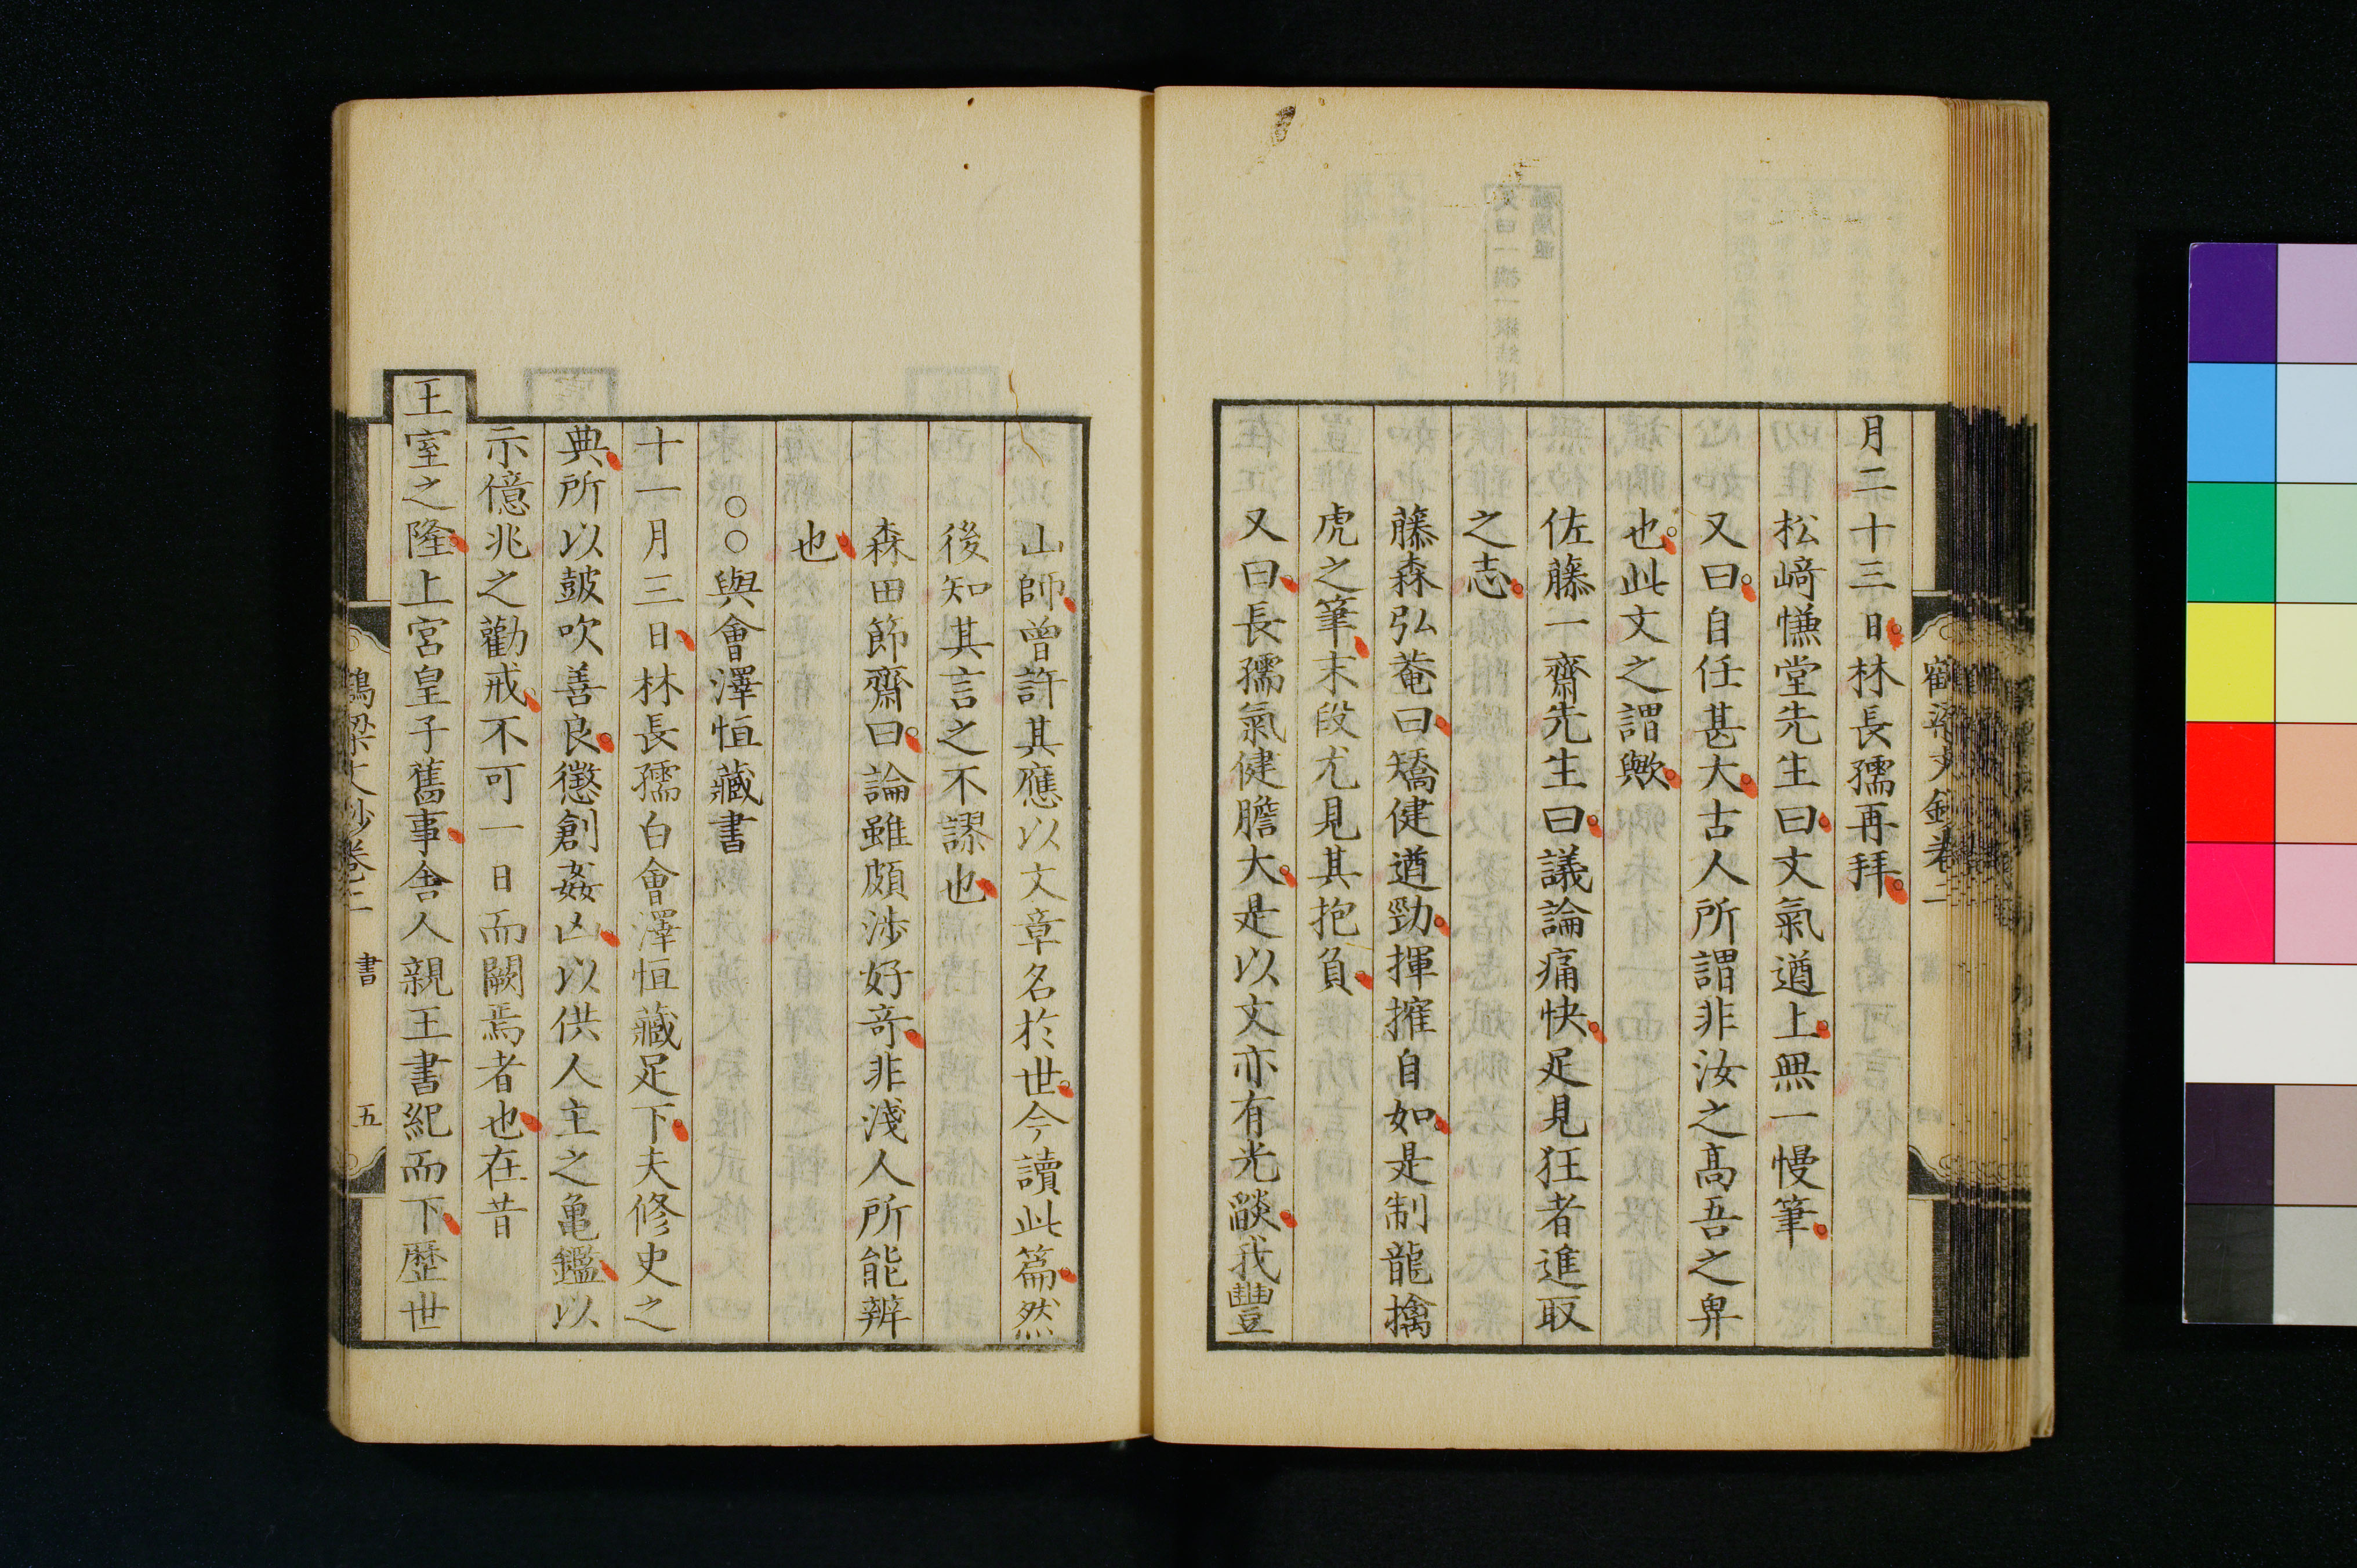 月二十三日林長孺再拜
松﨑慊堂先生曰文氣遒上無一慢筆
又曰自任甚大古人所謂非汝之髙吾之卑
也此文之謂歟
佐藤一齋先生曰議論痛快足見狂者進取
之志
藤森弘菴曰矯健遒勁揮擁自如是制龍擒
虎之筆末段尤見其抱負
又曰長孺氣健膽大是以文亦有光燄我豐
山師曽許其應以文章名於世今讀此篇然
後知其言之不謬也
森田節齋曰論雖頗涉好奇非淺人所能辨
也
○○與會澤恒藏書
十一月三日林長孺白會澤恒藏足下夫修史之
典所以鼓吹善良懲創姦凶以供人主之亀鑑以
示億兆之勸戒不可一日而闕焉者也在昔
王室之隆上宮皇子舊事舎人親王書紀而下歷世
鶴梁文鈔卷二 書 五